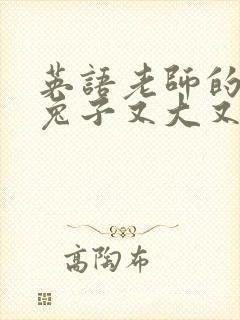 英語老師的
兔子又大又
高陶布